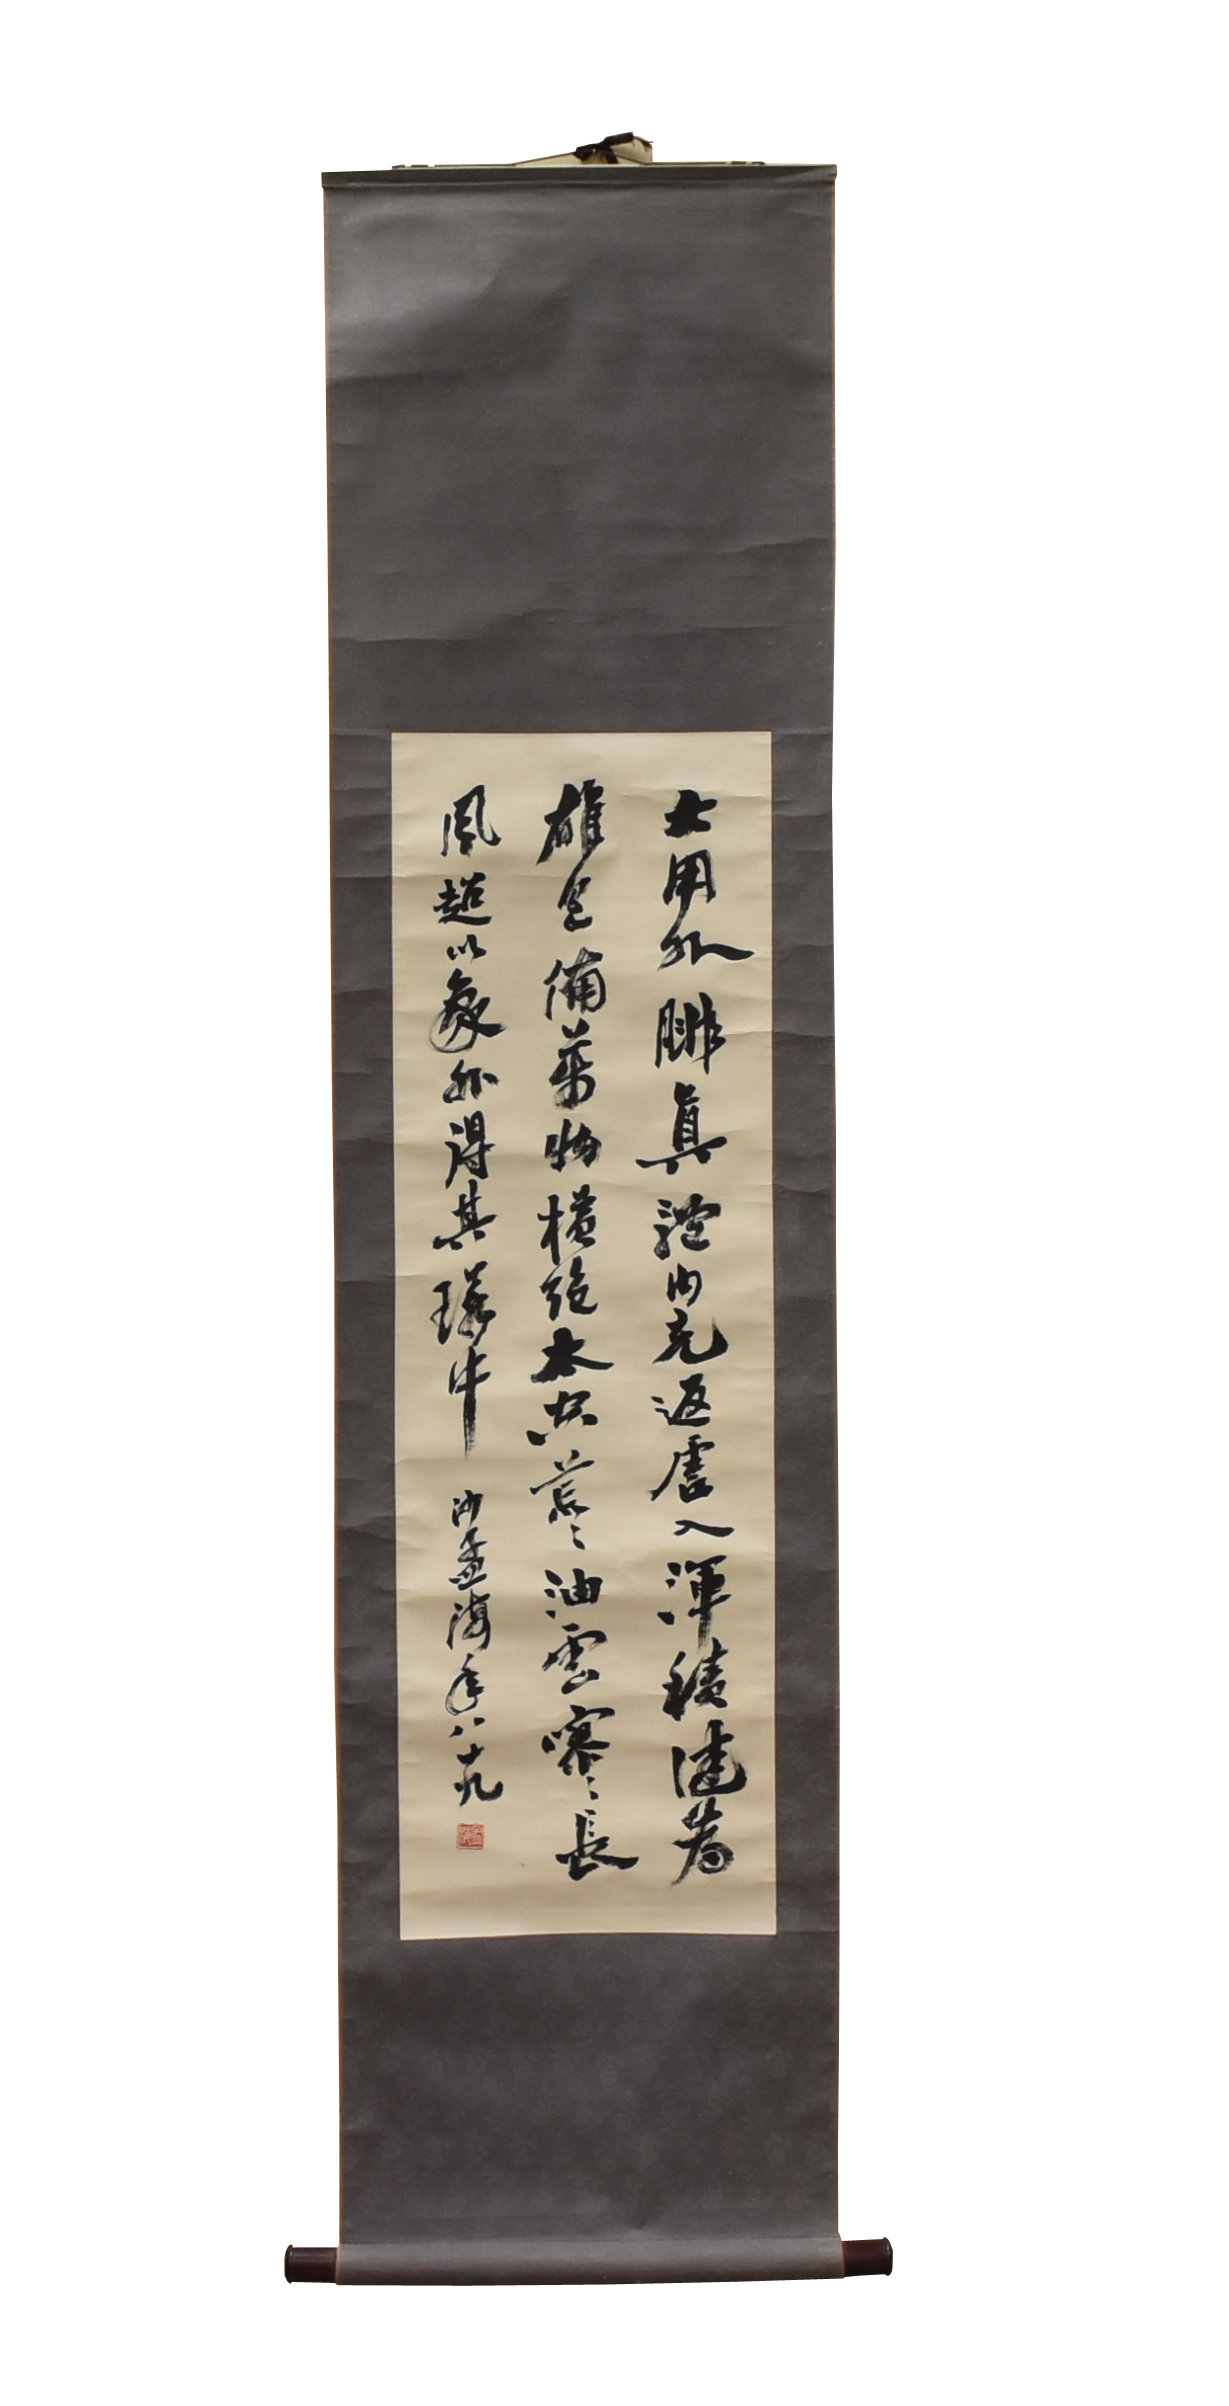 大用外腓真體內充返虛入渾積健為
雄具備萬物橫絕太空荒〻油雲寥〻長
風超以象外得其環中 沙孟海年八十九